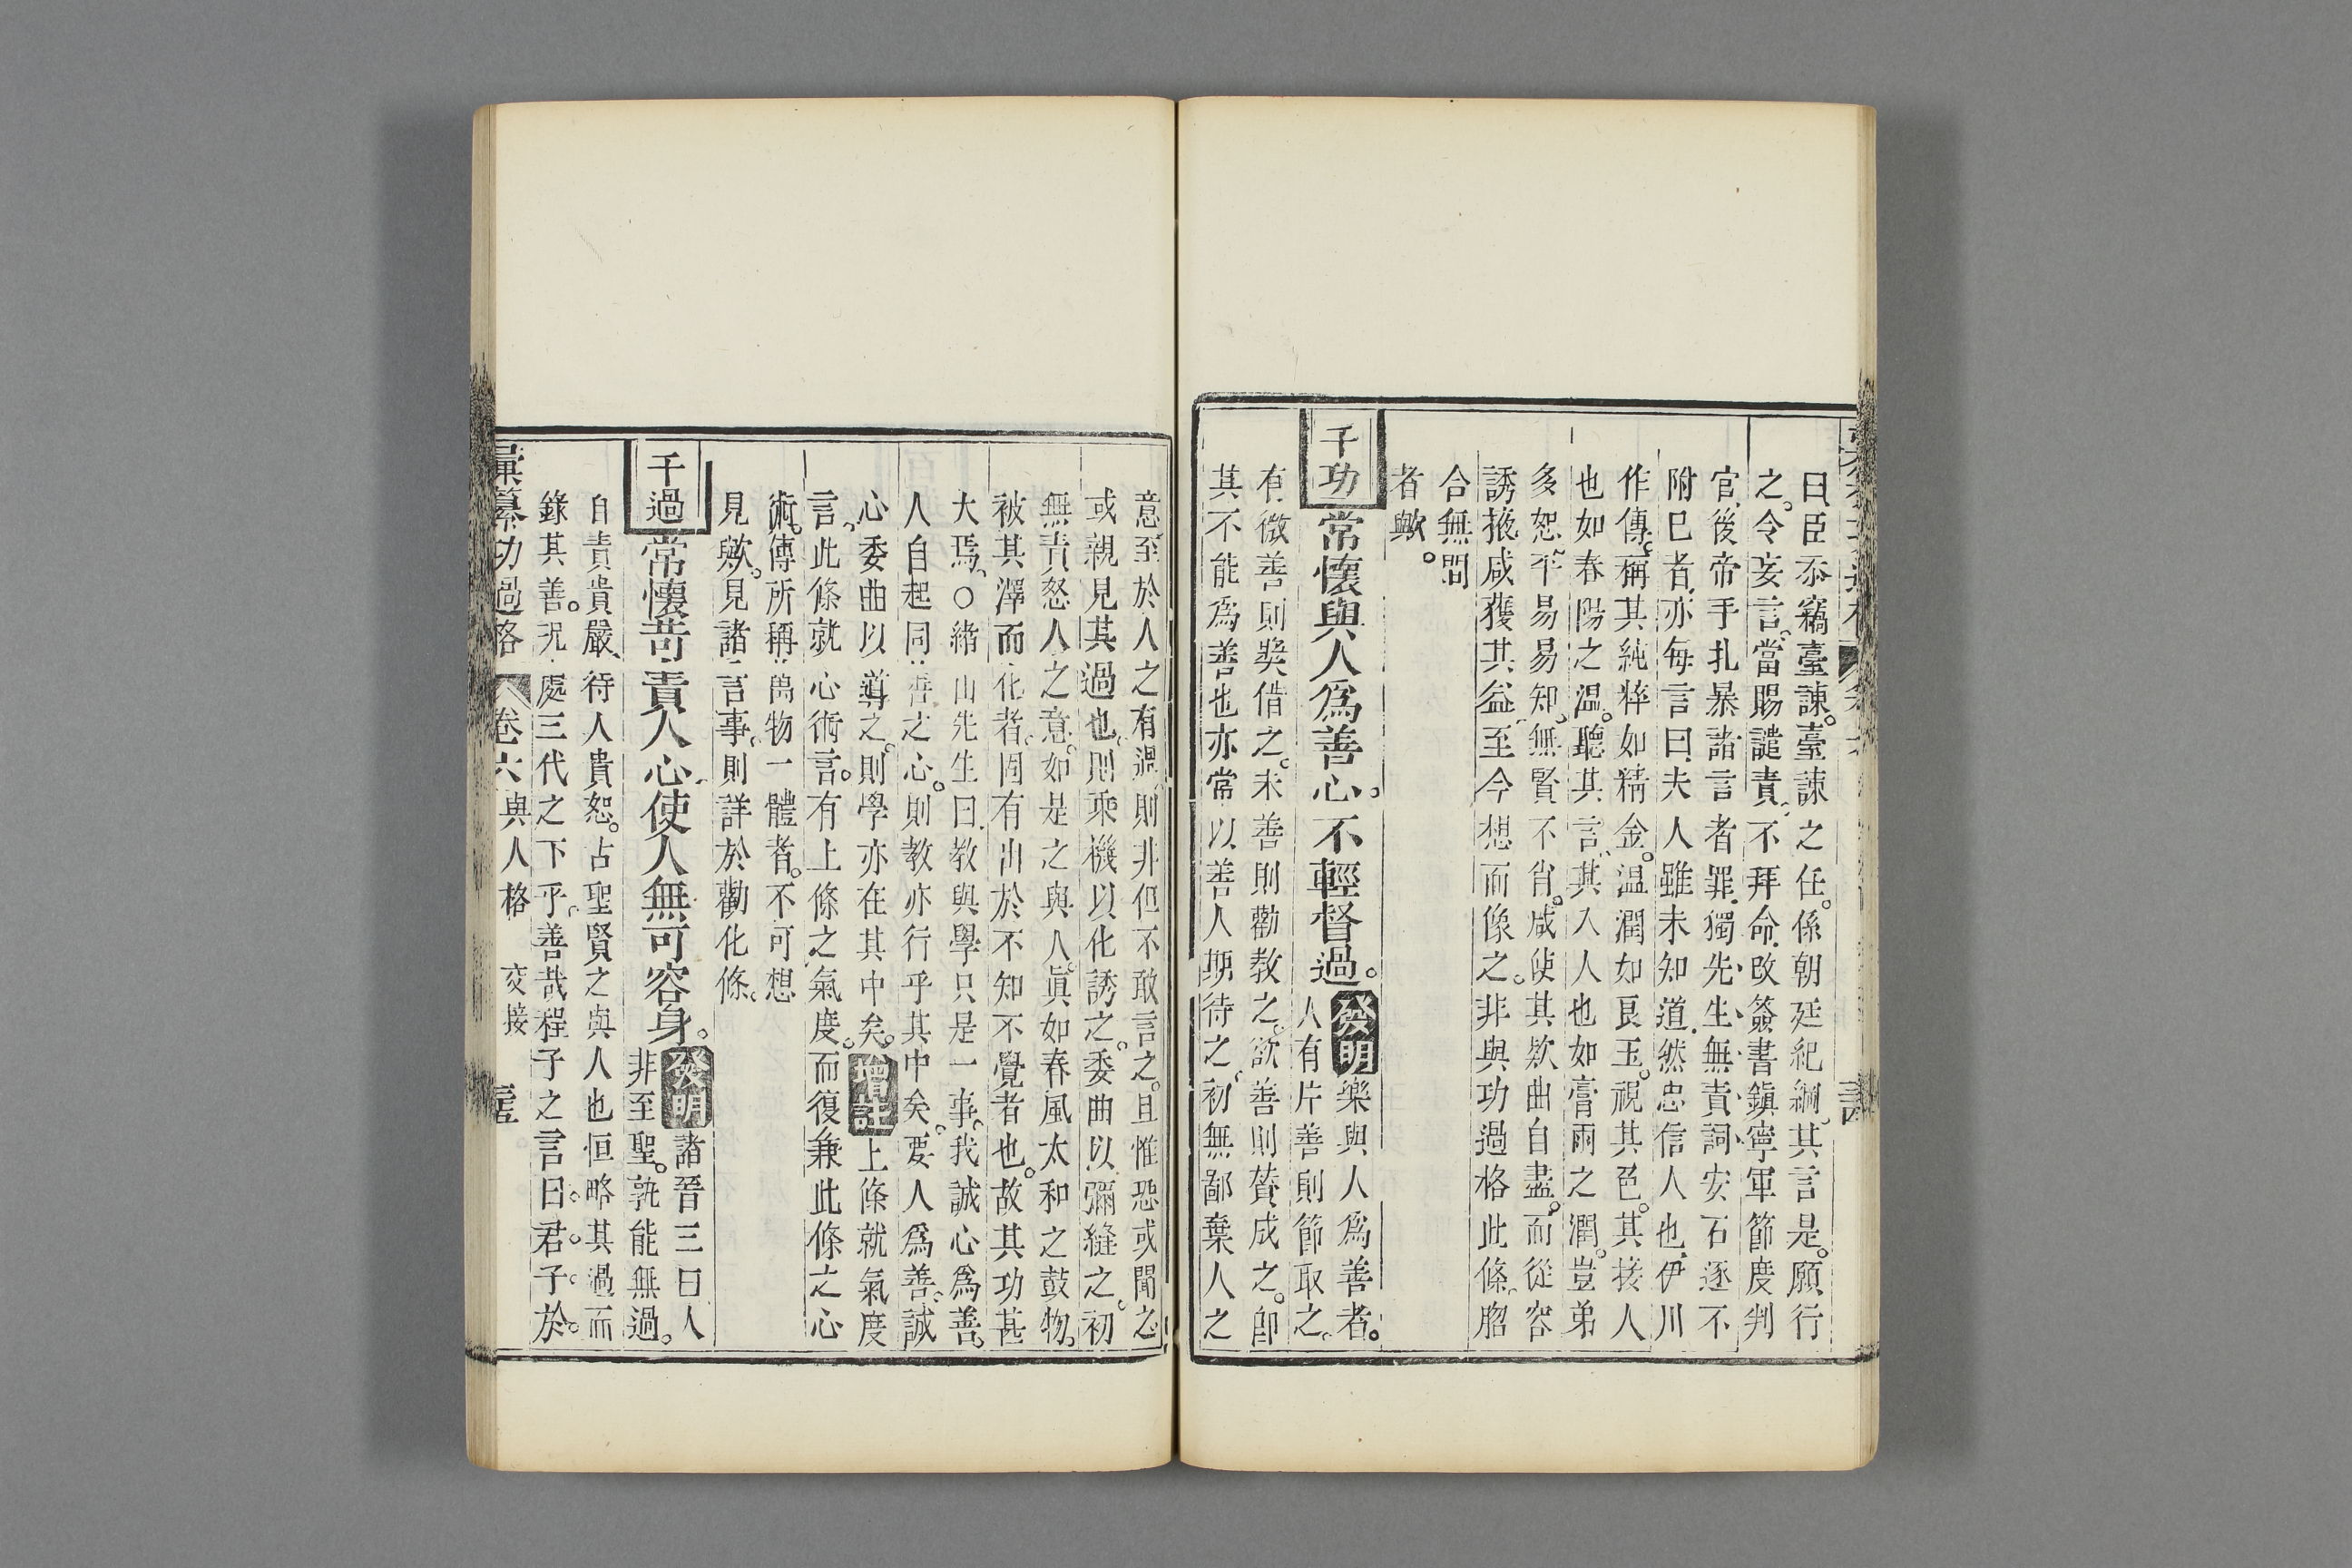 曰臣忝竊臺諫。臺諫之任。係朝廷紀綱。其言是。願行
之。令妄言。當賜譴責。不拜命。改簽書鎮寧軍節度判
官。後帝手扎暴諸言者罪。獨先生無責詞。安石逐不
附巳者。亦每言曰。夫人雖未知道。然忠信人也。伊川
作傳。稱其純粹如精金。温潤如良玉。視其色。其接人
也如春陽之温。聽其言。其入人也如膏雨之潤。豈弟
多恕。平易易知。無賢不肖。咸使其欵曲自盡。而從容
誘掖咸獲其益。至今想而像之。非與功過格此條。脗
合無間
者歟。
千功
常懷與人爲善心。不輕督過。
發明
樂與人爲善者。
人有片善則節取之。
有微善則奬借之。未善則勸教之。欲善則贊成之。卽
其不能爲善也亦常以善人期待之。初無鄙棄人之
意。至於人之有過。則非但不敢言之。且惟恐或聞之
或親見其過也。則乘機以化誘之。委曲以彌縫之。初
無責怒人之意。如是之與人。眞如春風太和之鼓物。
被其澤而化者。固有出於不知不覺者也。故其功甚
大焉。○緒山先生曰。教與學只是一事。我誠心爲善。
人自起同善之心。則教亦行乎其中矣。要人爲善。誠
心委曲以導之。則學亦在其中矣。
增註
上條就氣度
言。此條就心術言。有上條之氣度。而復兼此條之心
術。傳所稱萬物一體者。不可想
見歟。見諸言事。則詳於勸化條。
千過
常懷苛責人心使人無可容身。
發明
諸晉三曰人
非至聖。孰能無過。
自責貴嚴。待人貴恕。占聖賢之與人也恒略其過而
錄其善。况處三代之下乎。善哉程子之言曰。君子於。
彙纂功過格
卷六
與人格
交接